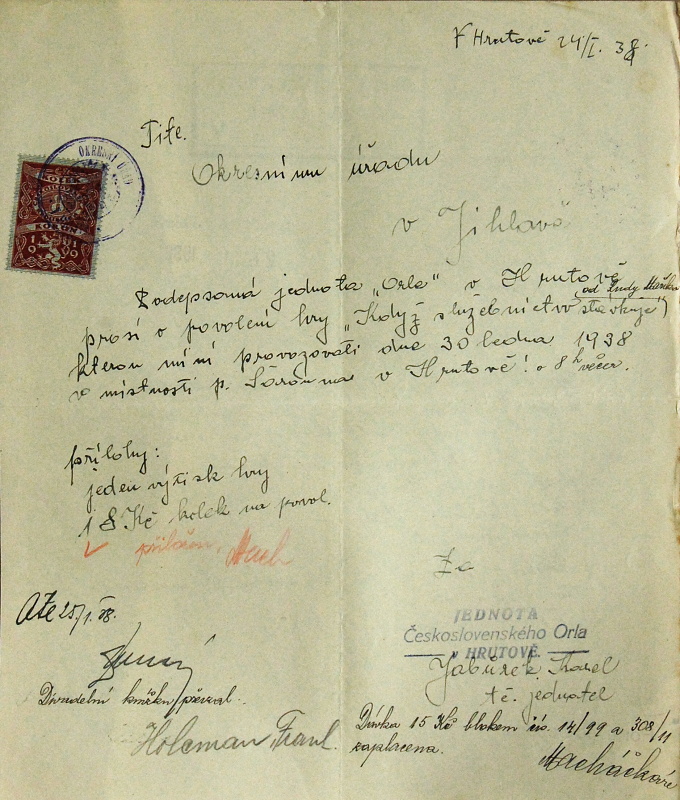 V Hrutově 24/I. 38.
Tite.
Okresnímu úřadu
v Jihlavě
OKRESNÍ ÚŘAD
KOLEK
KORUN
1919
Podepsaná jednota „Orla“ v Hrutově
prosí o povolení hry „Když služebnictvo stávkuje“ (od Lindy Maříka)
kterou míní provozovati dne 30 ledna 1938
v místnosti p. v Hrutově! o 8 h večer.
přílohy:
jeden výtisk hry
1 8 Kč kolek na povol.
přiložen. Mach
Za
25/1. 38.
JEDNOTA
Československého Orla
v HRUTOVĚ.
Jabůrek Karel
tč. jednatel
Divadelní knížku převzal.
Holcman Frant.
Dávka 15 Kč blokem čís. 14/99 a 308/11
zaplacena.